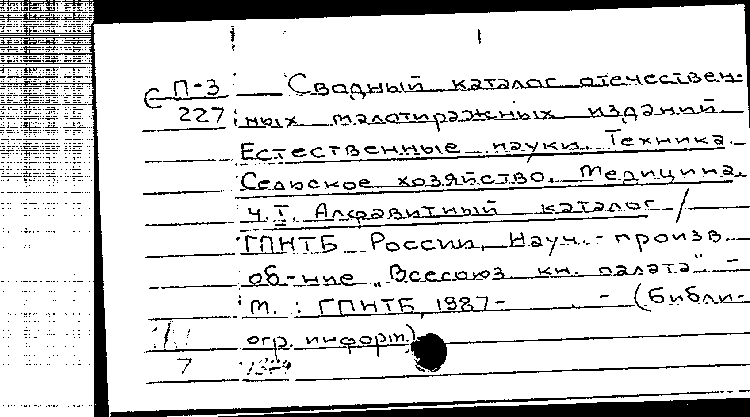 С П-3 Сводный каталог отечествен-
227 ных малотиражных изданий.
Естественные науки. Техника.
Сельское хозяйство. Медицина.
Ч.I. Алфавитный каталог /
ГПНТБ России, Науч.-произв.
об-ние "Всесоюз. кн. палата". -
М. : ГПНТБ, 1987- . - (Библи-
огр. информ.)
7